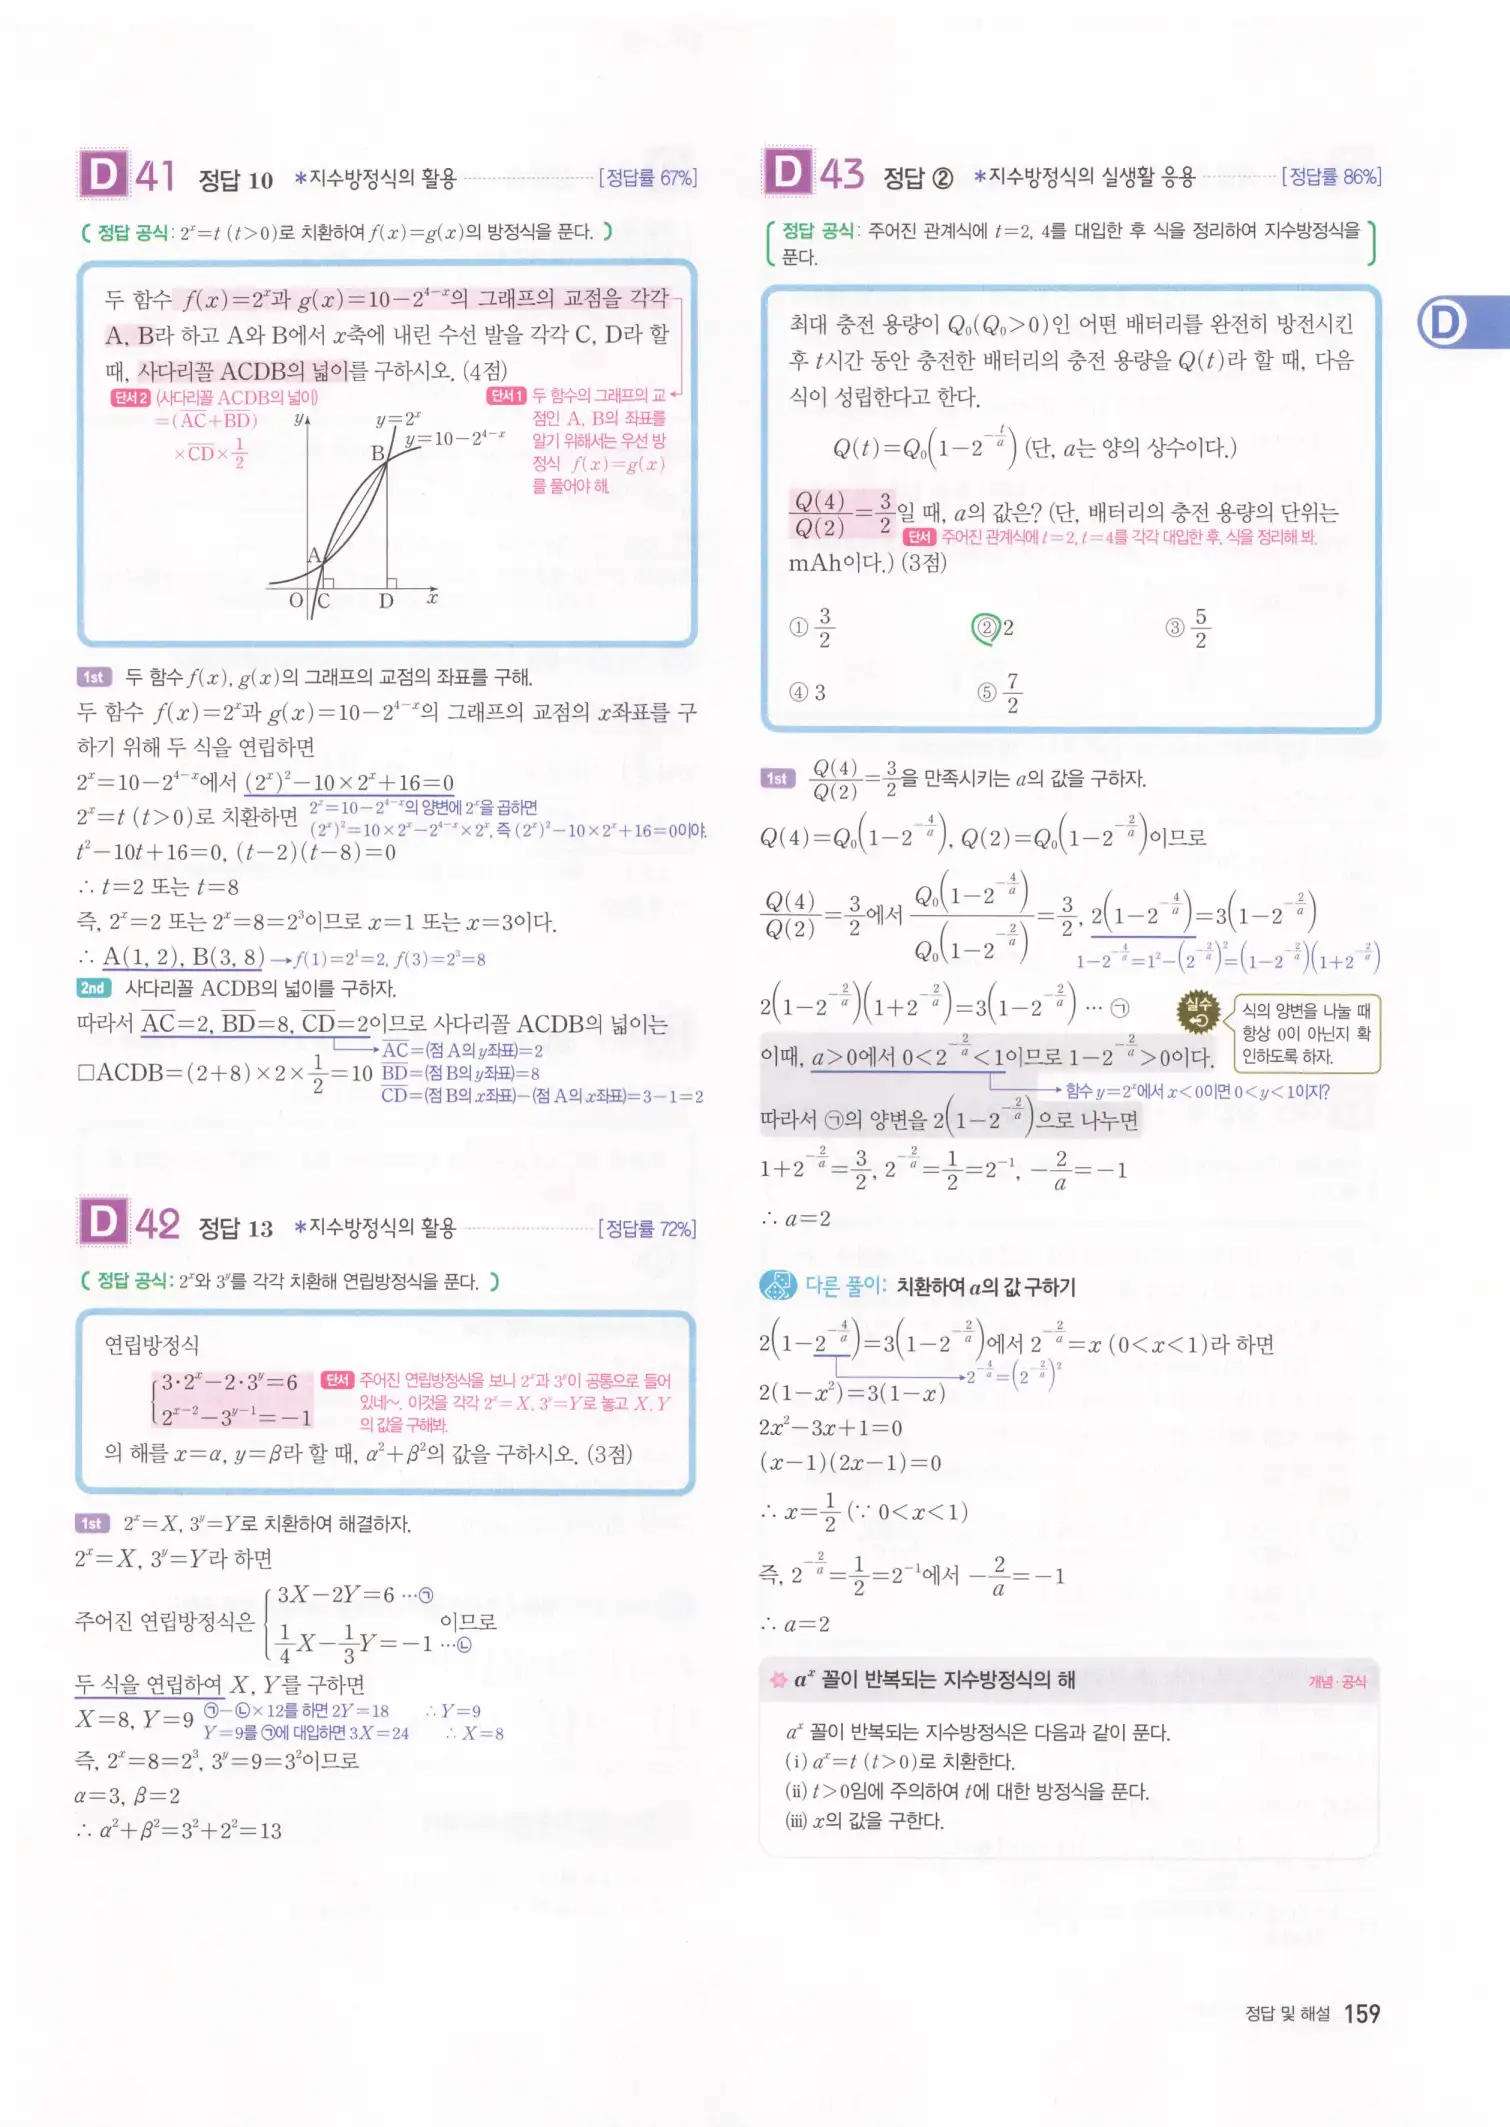 D 41 정답 10 *지수방정식의 활용 [정답률 67%]
( 정답 공식: 2ˣ=t (t>0)로 치환하여 f(x)=g(x)의 방정식을 푼다. )
두 함수 f(x)=2ˣ과 g(x)=10−2⁴⁻ˣ의 그래프의 교점을 각각
A, B라 하고 A와 B에서 x축에 내린 수선 발을 각각 C, D라 할
때, 사다리꼴 ACDB의 넓이를 구하시오. (4점)
단서2 (사다리꼴 ACDB의 넓이)
=(AC+BD)
×CD×1/2
단서1 두 함수의 그래프의 교
점인 A, B의 좌표를
알기 위해서는 우선 방
정식 f(x)=g(x)
를 풀어야 해.
y
y=2ˣ
y=10−2⁴⁻ˣ
B
A
O C D x
1st 두 함수 f(x), g(x)의 그래프의 교점의 좌표를 구해.
두 함수 f(x)=2ˣ과 g(x)=10−2⁴⁻ˣ의 그래프의 교점의 x좌표를 구
하기 위해 두 식을 연립하면
2ˣ=10−2⁴⁻ˣ에서 (2ˣ)²−10×2ˣ+16=0
2ˣ=t (t>0)로 치환하면
2ˣ=10−2⁴⁻ˣ의 양변에 2ˣ을 곱하면
(2ˣ)²=10×2ˣ−2⁴⁻ˣ×2ˣ, 즉 (2ˣ)²−10×2ˣ+16=0이야.
t²−10t+16=0, (t−2)(t−8)=0
∴ t=2 또는 t=8
즉, 2ˣ=2 또는 2ˣ=8=2³이므로 x=1 또는 x=3이다.
∴ A(1, 2), B(3, 8) →f(1)=2¹=2, f(3)=2³=8
2nd 사다리꼴 ACDB의 넓이를 구하자.
따라서 AC=2, BD=8, CD=2이므로 사다리꼴 ACDB의 넓이는
AC=(점 A의 y좌표)=2
□ACDB=(2+8)×2×1/2=10 BD=(점 B의 y좌표)=8
CD=(점 B의 x좌표)−(점 A의 x좌표)=3−1=2
D 42 정답 13 *지수방정식의 활용 [정답률 72%]
( 정답 공식: 2ˣ와 3ʸ를 각각 치환해 연립방정식을 푼다. )
연립방정식
3·2ˣ−2·3ʸ=6
2ˣ⁻²−3ʸ⁻¹=−1
단서 주어진 연립방정식을 보니 2ˣ과 3ʸ이 공통으로 들어
있네~. 이것을 각각 2ˣ=X, 3ʸ=Y로 놓고 X, Y
의 값을 구해봐.
의 해를 x=α, y=β라 할 때, α²+β²의 값을 구하시오. (3점)
1st 2ˣ=X, 3ʸ=Y로 치환하여 해결하자.
2ˣ=X, 3ʸ=Y라 하면
주어진 연립방정식은 { 3X−2Y=6 …㉠
1/4X−1/3Y=−1 …㉡ 이므로
두 식을 연립하여 X, Y를 구하면
X=8, Y=9
㉠−㉡×12를 하면 2Y=18 ∴ Y=9
Y=9를 ㉠에 대입하면 3X=24 ∴ X=8
즉, 2ˣ=8=2³, 3ʸ=9=3²이므로
α=3, β=2
∴ α²+β²=3²+2²=13
D 43 정답 ② *지수방정식의 실생활 응용 [정답률 86%]
[ 정답 공식: 주어진 관계식에 t=2, 4를 대입한 후 식을 정리하여 지수방정식을
푼다. ]
최대 충전 용량이 Q₀(Q₀>0)인 어떤 배터리를 완전히 방전시킨
후 t시간 동안 충전한 배터리의 충전 용량을 Q(t)라 할 때, 다음
식이 성립한다고 한다.
Q(t)=Q₀(1−2^(−t/a)) (단, a는 양의 상수이다.)
Q(4)/Q(2)=3/2일 때, a의 값은? (단, 배터리의 충전 용량의 단위는
단서 주어진 관계식에 t=2, t=4를 각각 대입한 후, 식을 정리해 봐.
mAh이다.) (3점)
① 3/2 ② 2 ③ 5/2
④ 3 ⑤ 7/2
1st Q(4)/Q(2)=3/2을 만족시키는 a의 값을 구하자.
Q(4)=Q₀(1−2^(−4/a)), Q(2)=Q₀(1−2^(−2/a))이므로
Q(4)/Q(2)=3/2에서 Q₀(1−2^(−4/a))/Q₀(1−2^(−2/a))=3/2, 2(1−2^(−4/a))=3(1−2^(−2/a))
1−2^(−4/a)=1²−(2^(−2/a))²=(1−2^(−2/a))(1+2^(−2/a))
2(1−2^(−2/a))(1+2^(−2/a))=3(1−2^(−2/a)) … ㉠
실수
식의 양변을 나눌 때
항상 0이 아닌지 확
인하도록 하자.
이때, a>0에서 0<2^(−2/a)<1이므로 1−2^(−2/a)>0이다.
함수 y=2ˣ에서 x<0이면 0<y<1이지?
따라서 ㉠의 양변을 2(1−2^(−2/a))으로 나누면
1+2^(−2/a)=3/2, 2^(−2/a)=1/2=2⁻¹, −2/a=−1
∴ a=2
다른 풀이: 치환하여 a의 값 구하기
2(1−2^(−4/a))=3(1−2^(−2/a))에서 2^(−2/a)=x (0<x<1)라 하면
2^(−4/a)=(2^(−2/a))²
2(1−x²)=3(1−x)
2x²−3x+1=0
(x−1)(2x−1)=0
∴ x=1/2 (∵ 0<x<1)
즉, 2^(−2/a)=1/2=2⁻¹에서 −2/a=−1
∴ a=2
aˣ 꼴이 반복되는 지수방정식의 해 개념·공식
aˣ 꼴이 반복되는 지수방정식은 다음과 같이 푼다.
(ⅰ) aˣ=t (t>0)로 치환한다.
(ⅱ) t>0임에 주의하여 t에 대한 방정식을 푼다.
(ⅲ) x의 값을 구한다.
D
정답 및 해설 159